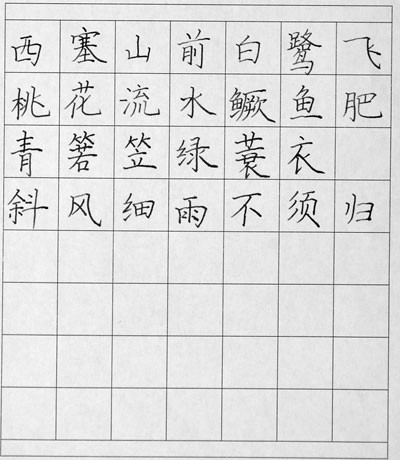 西塞山前白鹭飞
桃花流水鳜鱼肥
青箬笠绿蓑衣
斜风细雨不须归